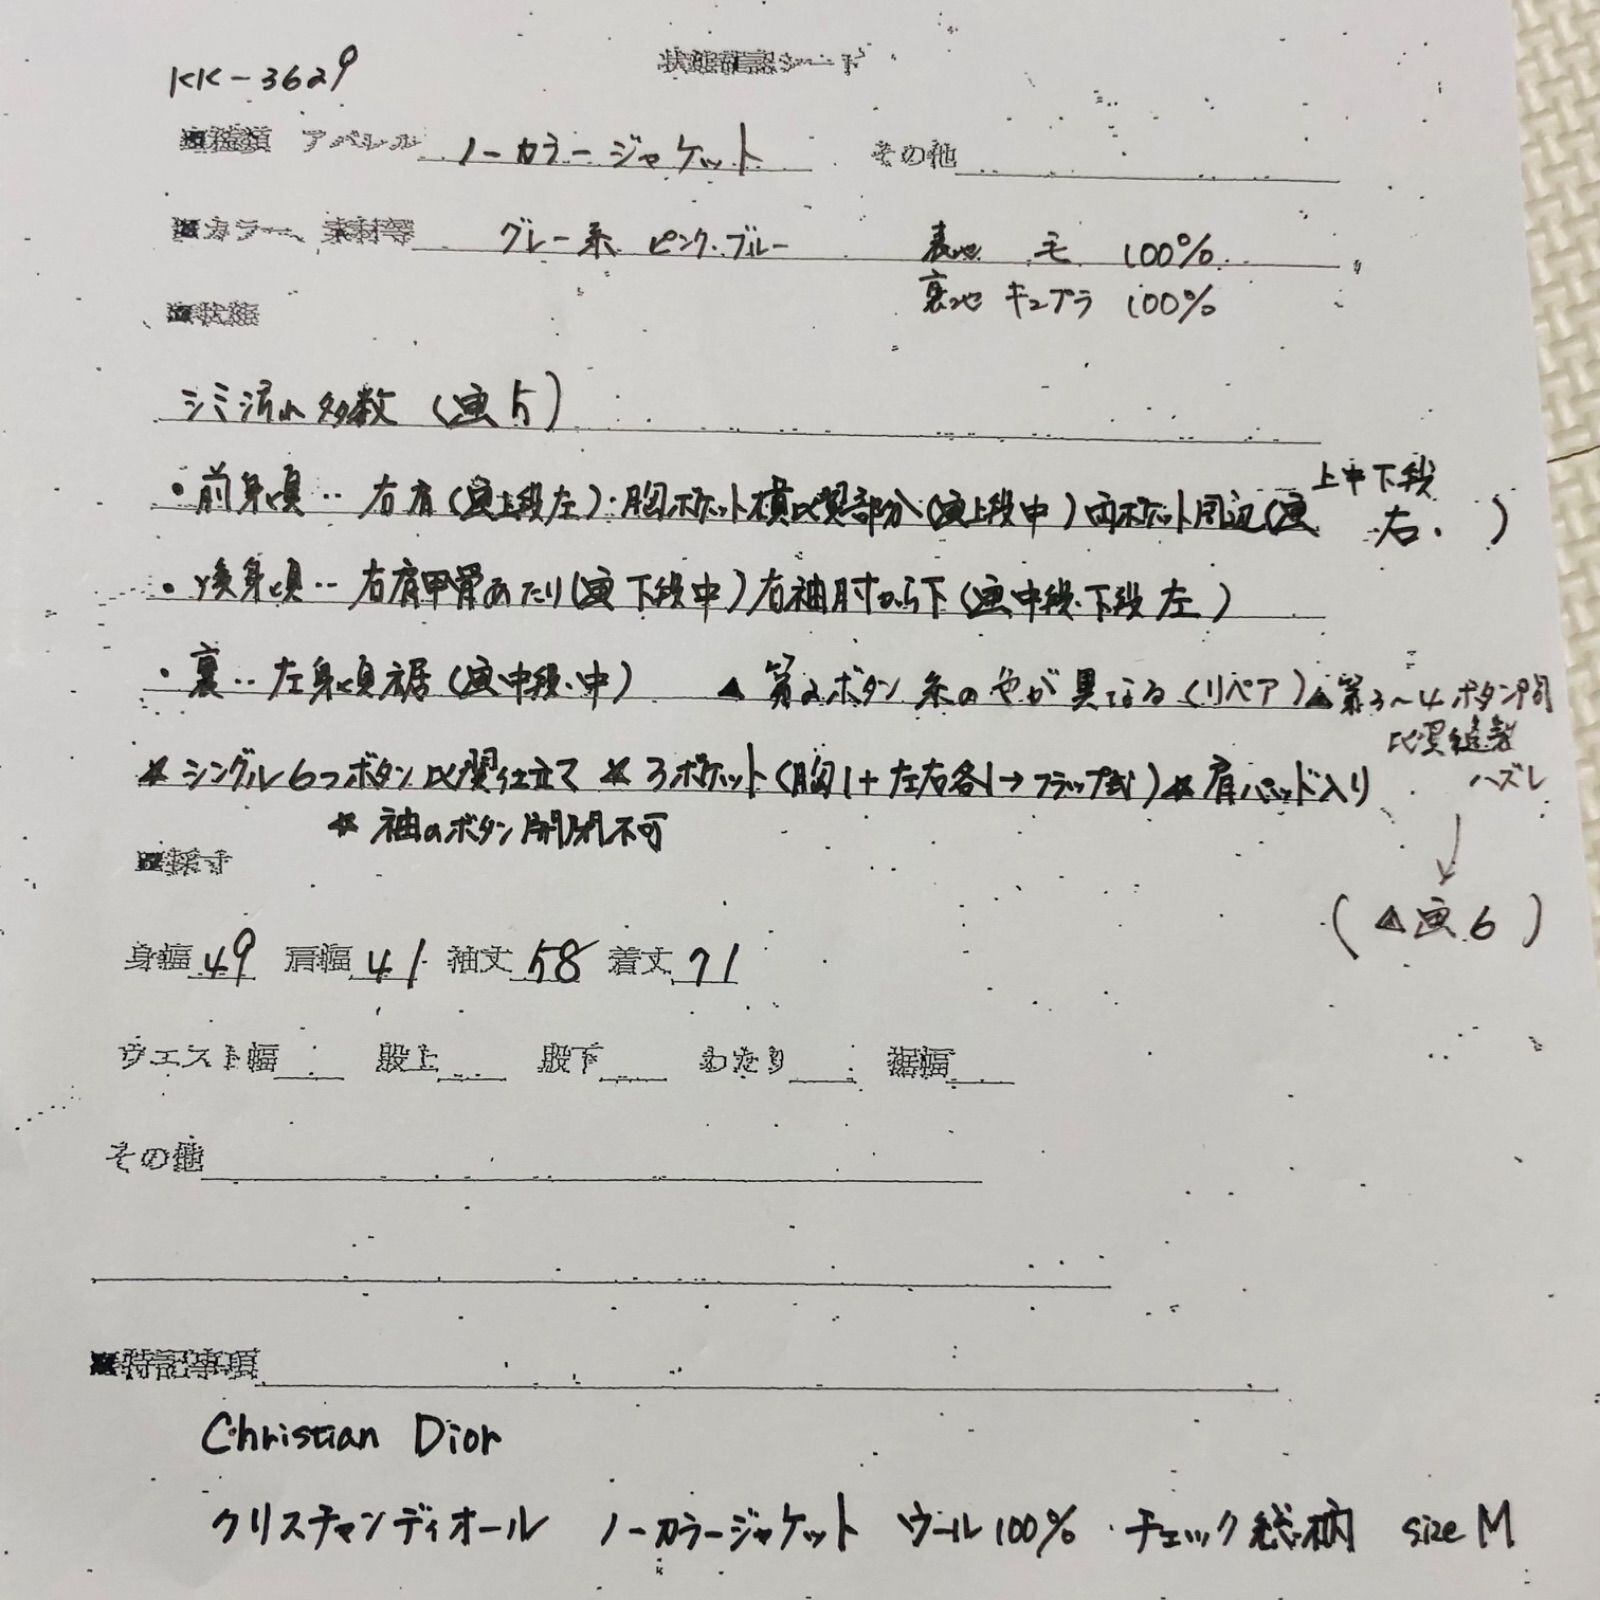 KK-3629
状態確認シート
■種類 アパレル ノーカラージャケット その他
■カラー、素材等 グレー系 ピンク・ブルー 表地 毛 100%
裏地 キュプラ 100%
■状態
シミ汚れ多数 (画5)
・前身頃‥右肩(画上段左)・胸ポケット横比翼部分(画上段中)両ポケット周辺(画上中下段右・)
・後身頃‥右肩甲骨あたり(画下段中)右袖肘から下(画中段・下段左)
・裏‥左身頃裾(画中段・中) ▲第2ボタン糸の色が異なる(リペア)▲第3〜4ボタン間
比翼縫製
ハズレ
*シングル6つボタン比翼仕立て *3ポケット(胸1+左右各1→フラップ式)*肩パッド入り
*袖のボタン開閉不可
(▲画6)
■採寸
身幅49 肩幅41 袖丈58 着丈71
ウエスト幅 股上 股下 わたり 裾幅
その他
■特記事項
Christian Dior
クリスチャンディオール ノーカラージャケット ウール100% チェック総柄 size M